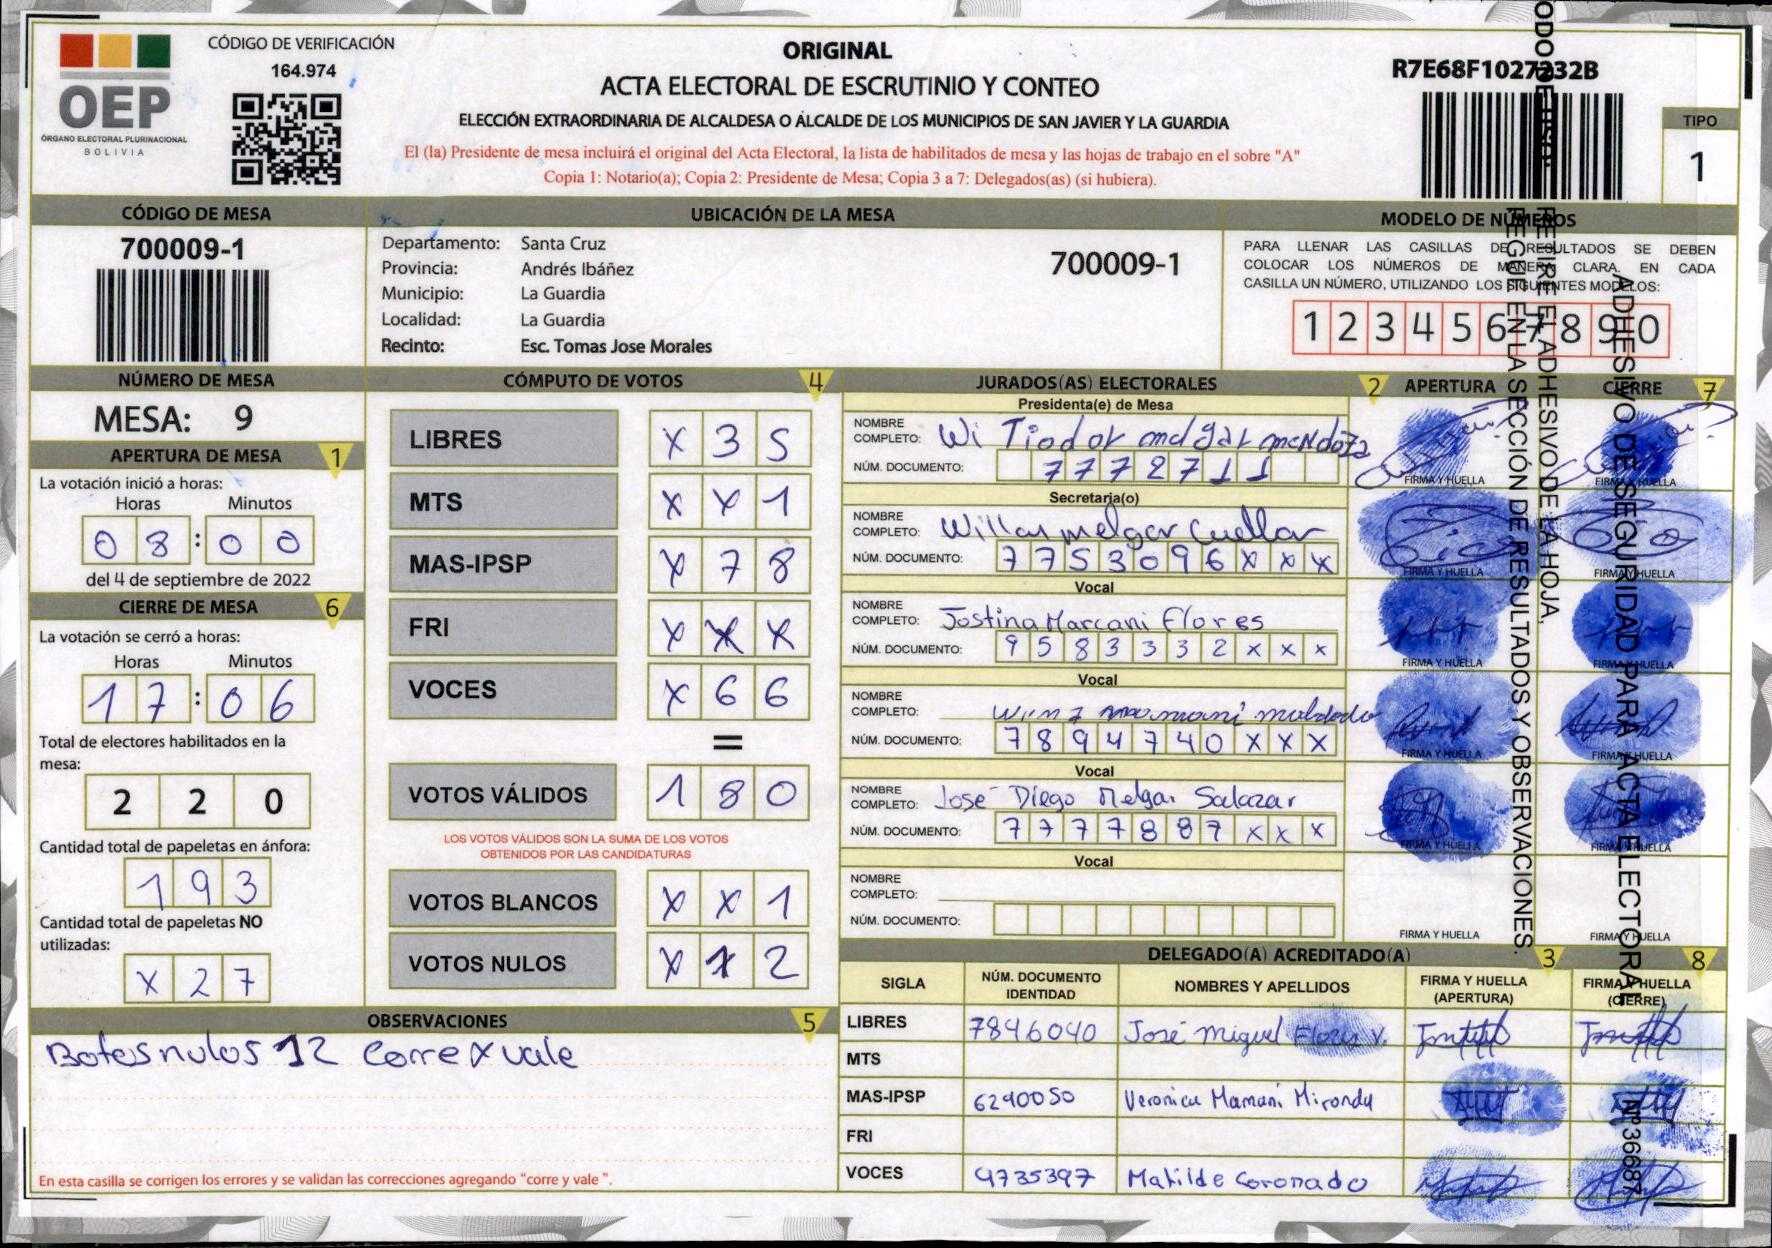 CÓDIGO DE VERIFICACIÓN
164.974
OEP
ÓRGANO ELECTORAL PLURINACIONAL
BOLIVIA
ORIGINAL
ACTA ELECTORAL DE ESCRUTINIO Y CONTEO
ELECCIÓN EXTRAORDINARIA DE ALCALDESA O ÁLCALDE DE LOS MUNICIPIOS DE SAN JAVIER Y LA GUARDIA
El (la) Presidente de mesa incluirá el original del Acta Electoral, la lista de habilitados de mesa y las hojas de trabajo en el sobre "A"
Copia 1: Notario(a); Copia 2: Presidente de Mesa; Copia 3 a 7: Delegados(as) (si hubiera).
R7E68F1027232B
TIPO
1
CÓDIGO DE MESA
700009-1
UBICACIÓN DE LA MESA
Departamento: Santa Cruz
Provincia: Andrés Ibáñez
Municipio: La Guardia
Localidad: La Guardia
Recinto: Esc. Tomas Jose Morales
700009-1
MODELO DE NÚMEROS
PARA LLENAR LAS CASILLAS DE RESULTADOS SE DEBEN
COLOCAR LOS NÚMEROS DE MANERA CLARA. EN CADA
CASILLA UN NÚMERO, UTILIZANDO LOS SIGUIENTES MODELOS:
1 2 3 4 5 6 7 8 9 0
NÚMERO DE MESA
MESA: 9
APERTURA DE MESA 1
La votación inició a horas:
Horas Minutos
08:00
del 4 de septiembre de 2022
CIERRE DE MESA 6
La votación se cerró a horas:
Horas Minutos
17:06
Total de electores habilitados en la
mesa:
2 2 0
Cantidad total de papeletas en ánfora:
1 9 3
Cantidad total de papeletas NO
utilizadas:
X 2 7
CÓMPUTO DE VOTOS 4
LIBRES X 3 5
MTS X X 1
MAS-IPSP X 7 8
FRI X X X
VOCES X 6 6
=
VOTOS VÁLIDOS 1 8 0
LOS VOTOS VÁLIDOS SON LA SUMA DE LOS VOTOS
OBTENIDOS POR LAS CANDIDATURAS
VOTOS BLANCOS X X 1
VOTOS NULOS X 1 2
OBSERVACIONES 5
Botos nulos 12 Corre X vale
En esta casilla se corrigen los errores y se validan las correcciones agregando "corre y vale ".
JURADOS(AS) ELECTORALES 2 APERTURA CIERRE 7
Presidenta(e) de Mesa
NOMBRE
COMPLETO: Wi Tiodor melgar mendoza
NÚM. DOCUMENTO: 7772711
FIRMA Y HUELLA FIRMA Y HUELLA
Secretaria(o)
NOMBRE
COMPLETO: Willan melgar Cuellar
NÚM. DOCUMENTO: 7753096XXX
FIRMA Y HUELLA FIRMA Y HUELLA
Vocal
NOMBRE
COMPLETO: Jostina Marcani Flores
NÚM. DOCUMENTO: 9583332XXX
FIRMA Y HUELLA FIRMA Y HUELLA
Vocal
NOMBRE
COMPLETO: mamani maldodo
NÚM. DOCUMENTO: 7894740XXX
FIRMA Y HUELLA FIRMA Y HUELLA
Vocal
NOMBRE
COMPLETO: José Diego Melgar Salazar
NÚM. DOCUMENTO: 7777887XXX
FIRMA Y HUELLA FIRMA Y HUELLA
Vocal
NOMBRE
COMPLETO:
NÚM. DOCUMENTO:
FIRMA Y HUELLA FIRMA Y HUELLA
DELEGADO(A) ACREDITADO(A) 3 8
SIGLA NÚM. DOCUMENTO IDENTIDAD NOMBRES Y APELLIDOS FIRMA Y HUELLA (APERTURA) FIRMA Y HUELLA (CIERRE)
LIBRES 7846040 José Miguel Flores V.
MTS
MAS-IPSP 6290050 Veronica Mamani Miranda
FRI
VOCES 9735397 Matilde Coronado
ADHESIVO DE SEGURIDAD PARA ACTA ELECTORAL
RETIRE EL ADHESIVO DE LA HOJA,
PEGUE EN LA SECCIÓN DE RESULTADOS Y OBSERVACIONES.
N° 36687